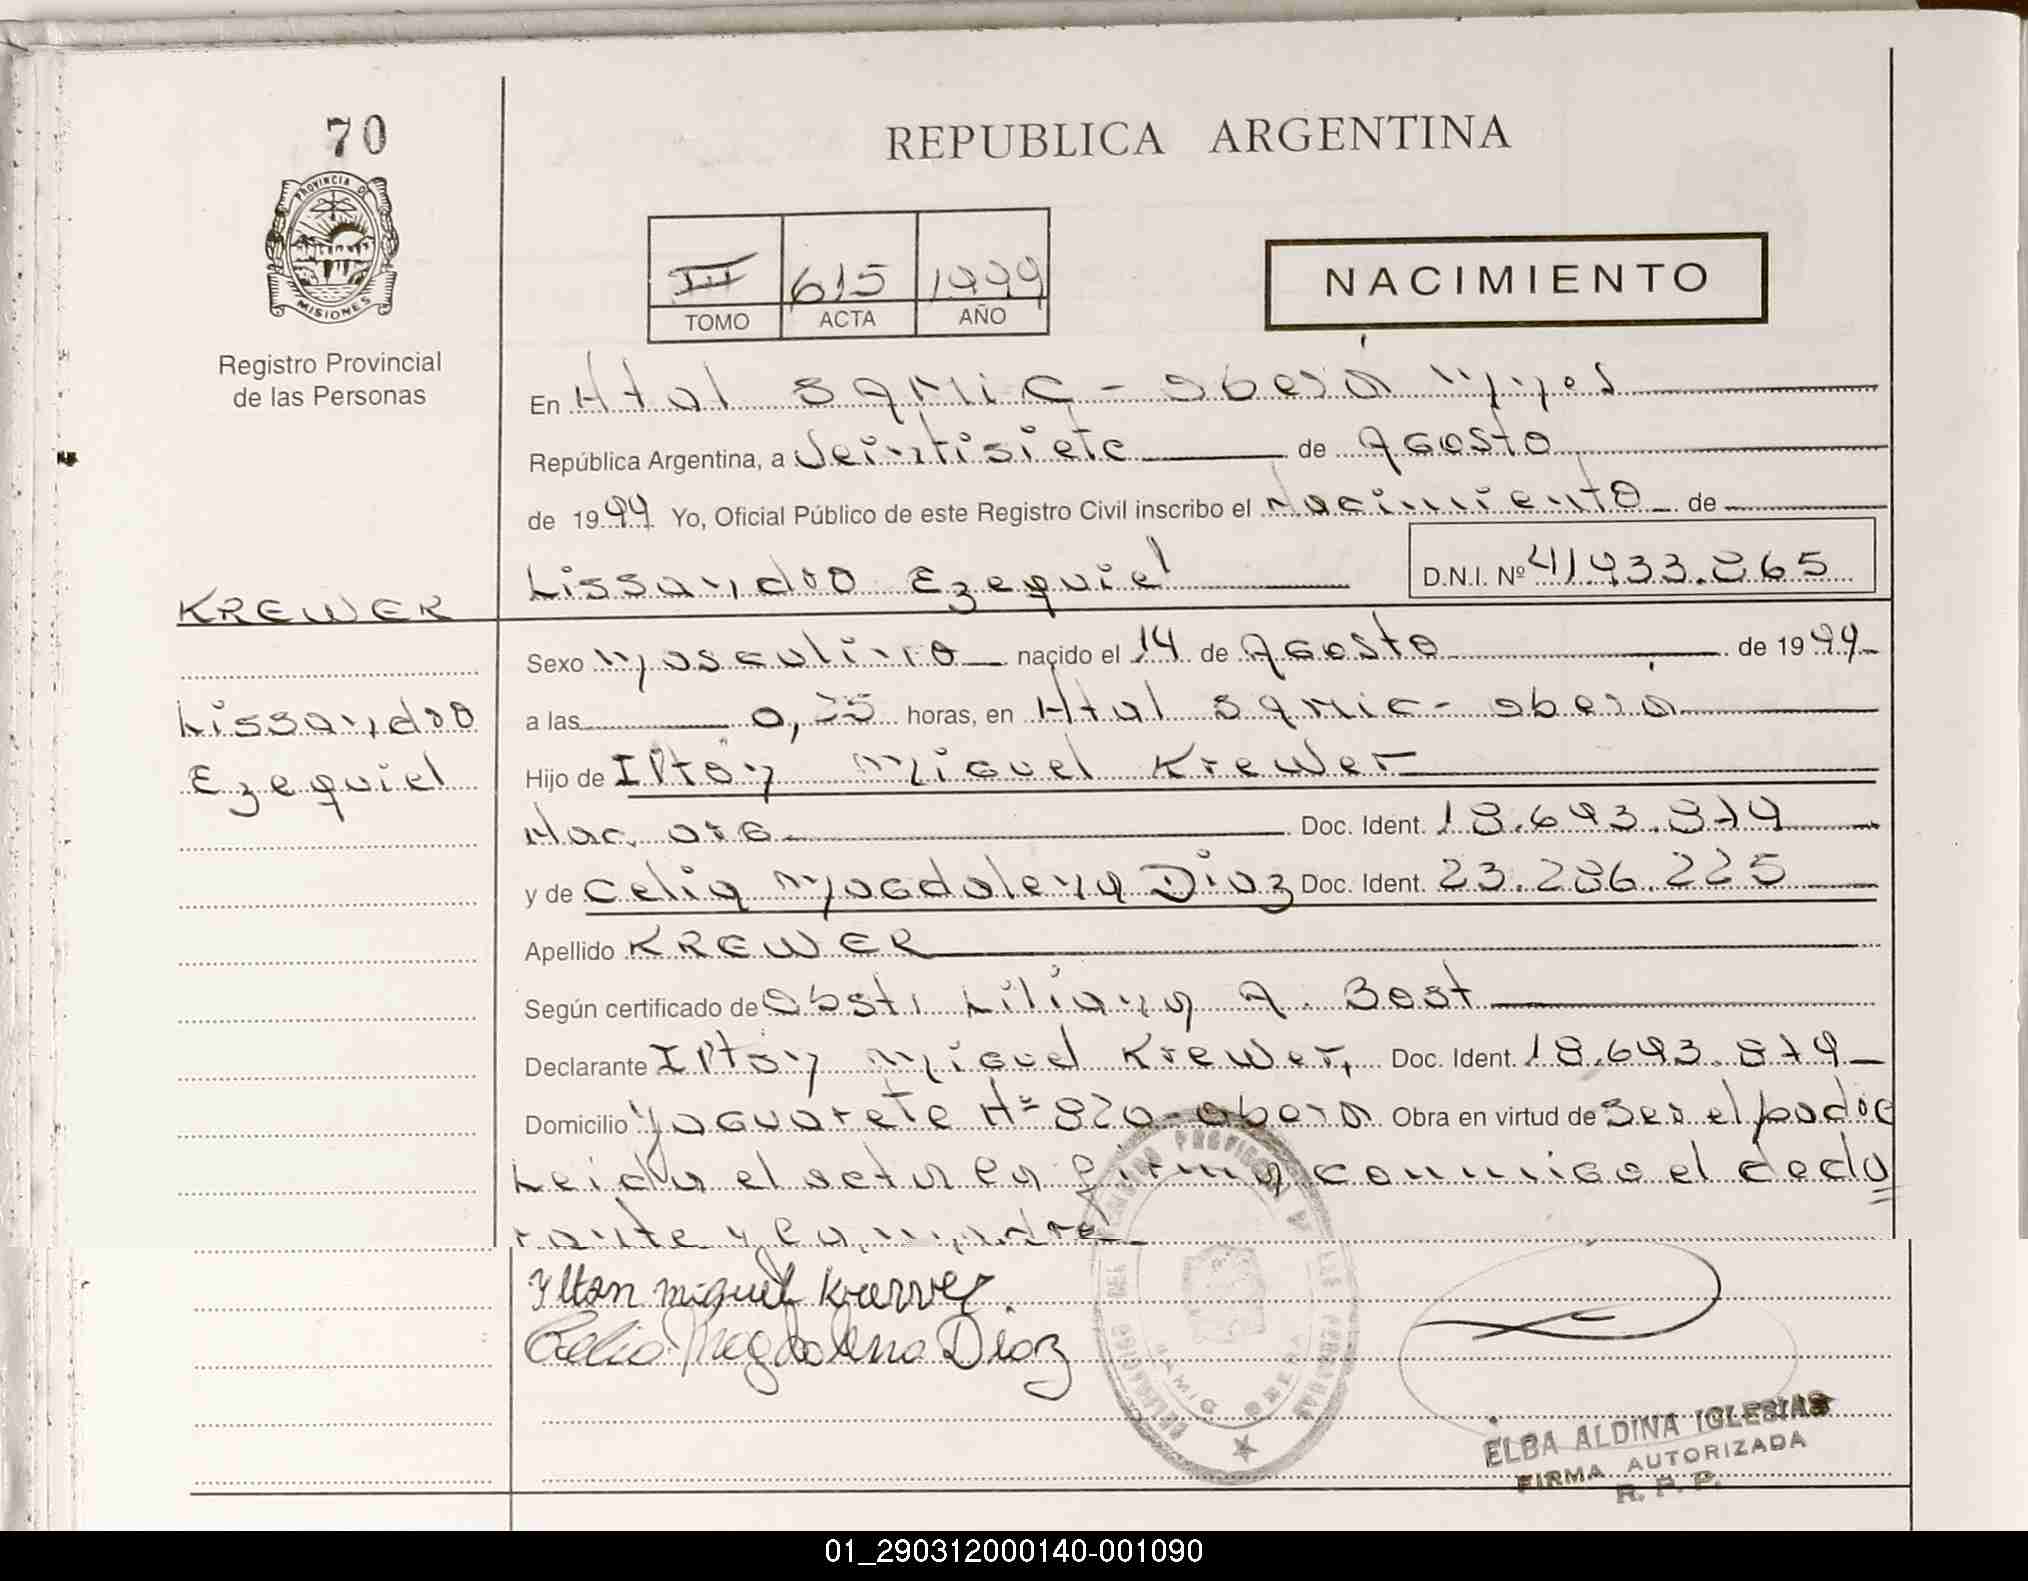 70
REPUBLICA ARGENTINA
PROVINCIA DE
MISIONES
III 615 1999
TOMO ACTA AÑO
NACIMIENTO
Registro Provincial
de las Personas
En Htal SAMIC - Oberá Mnes
República Argentina, a Veintisiete de Agosto
de 1999 Yo, Oficial Público de este Registro Civil inscribo el Nacimiento de
Lissandro Ezequiel D.N.I. Nº 41.933.265
KREWER
Sexo Masculino nacido el 14 de Agosto de 1999
Lissandro
a las 0,25 horas, en Htal SAMIC - Oberá
Ezequiel
Hijo de Ilton Miguel Krewer
Nac. arg. Doc. Ident. 18.693.879
y de Celia Magdalena Diaz Doc. Ident. 23.286.225
Apellido KREWER
Según certificado de Obst. Liliana A. Bost
Declarante Ilton Miguel Krewer, Doc. Ident. 18.693.879
Domicilio Yaguarete Nº 820 - Oberá Obra en virtud de ser el padre
Leida el acta la firma conmigo el decla
rante y la madre
Ylton Miguel Krewer
Celia Magdalena Diaz
REGISTRO PROVINCIAL DE LAS PERSONAS
SAMIC OBERA
ELBA ALDINA IGLESIAS
FIRMA AUTORIZADA
R. P. P.
01_290312000140-001090